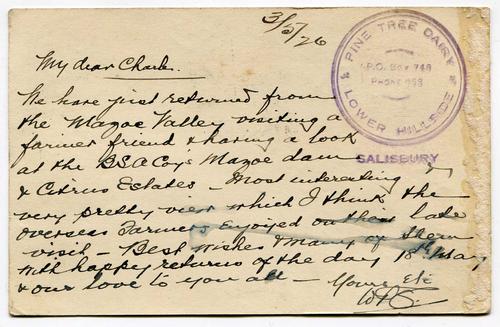 3/5/26
PINE TREE DAIRY
P.O. BOX 748
PHONE 993
LOWER HILLSIDE
SALISBURY
My dear Charles.
We have just returned from
the Mazoe Valley visiting a
farmer friend & having a look
at the B.S.A Coys Mazoe dam
& Citrus Estates – Most interesting
very pretty view which I think the
overseas Farmers enjoyed on their late
visit – Best wishes & many of them
with happy returns of the day 18th May
& our love to you all – Yours Etc